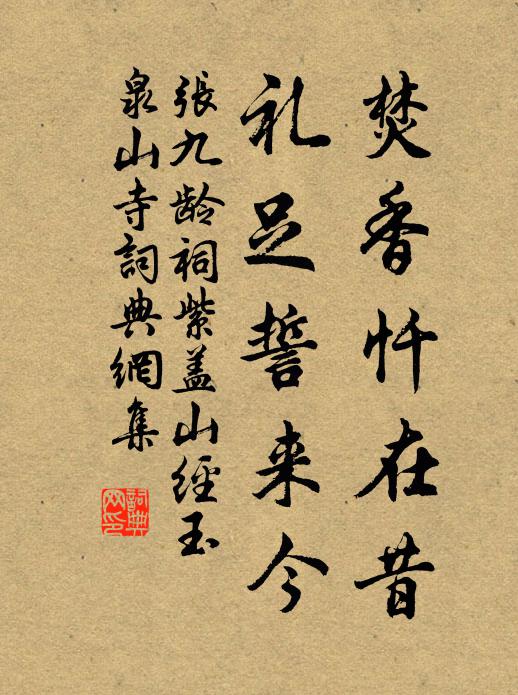 焚香忏在昔
礼足誓来今
張九龄祠紫盖山經玉
泉山寺詞典網集
詞典网印